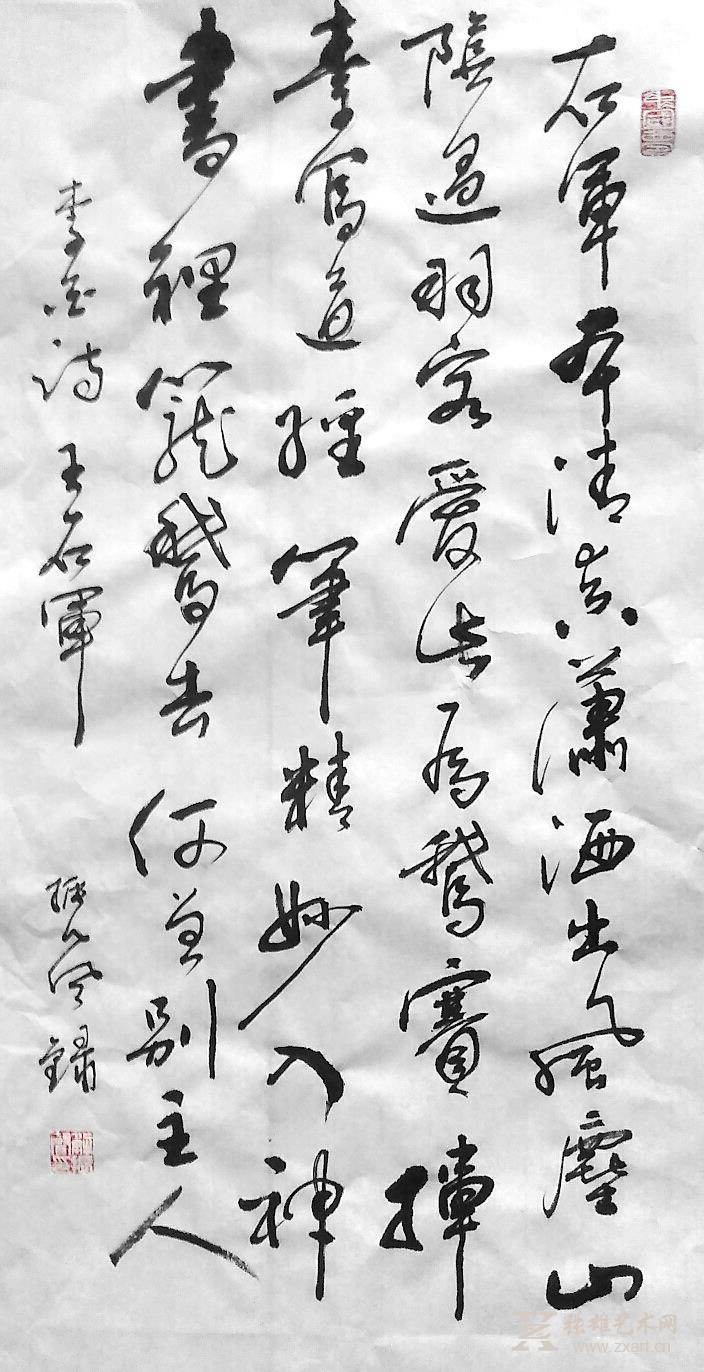 右軍本清真瀟洒出風塵山
陰過羽客愛此為鵝賓揮
素寫道經筆精妙入神
書裡籠鵝去何曾別主人
李白詩 王右軍
風錄
张雄艺术网
www.zxart.cn